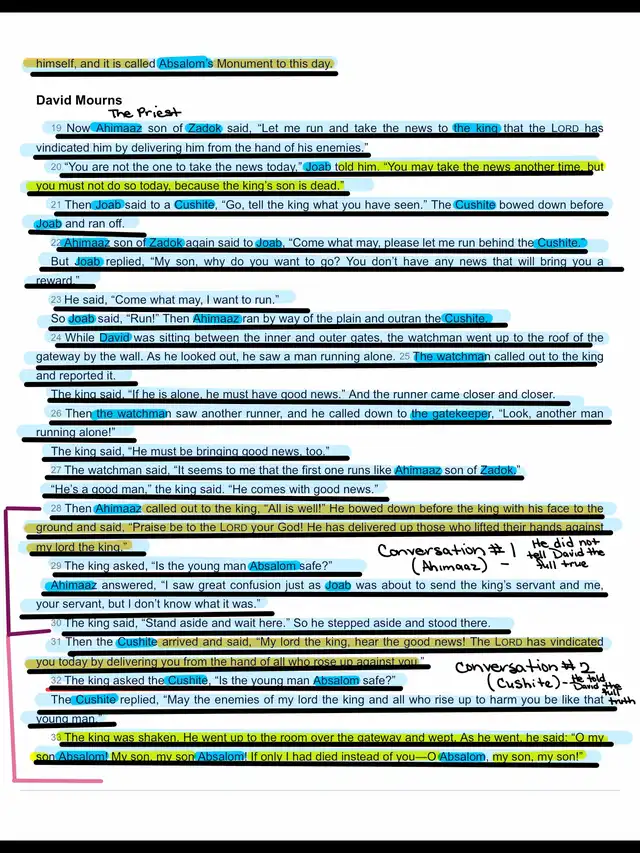 himself, and it is called Absalom's Monument to this day.
David Mourns
The Priest
19 Now Ahimaaz son of Zadok said, “Let me run and take the news to the king that the LORD has
vindicated him by delivering him from the hand of his enemies.”
20 “You are not the one to take the news today,” Joab told him. “You may take the news another time, but
you must not do so today, because the king's son is dead.”
21 Then Joab said to a Cushite, “Go, tell the king what you have seen.” The Cushite bowed down before
Joab and ran off.
22 Ahimaaz son of Zadok again said to Joab, “Come what may, please let me run behind the Cushite.”
But Joab replied, “My son, why do you want to go? You don't have any news that will bring you a
reward.”
23 He said, “Come what may, I want to run.”
So Joab said, “Run!” Then Ahimaaz ran by way of the plain and outran the Cushite.
24 While David was sitting between the inner and outer gates, the watchman went up to the roof of the
gateway by the wall. As he looked out, he saw a man running alone. 25 The watchman called out to the king
and reported it.
The king said, “If he is alone, he must have good news.” And the runner came closer and closer.
26 Then the watchman saw another runner, and he called down to the gatekeeper, “Look, another man
running alone!”
The king said, “He must be bringing good news, too.”
27 The watchman said, “It seems to me that the first one runs like Ahimaaz son of Zadok.”
“He's a good man,” the king said. “He comes with good news.”
28 Then Ahimaaz called out to the king, “All is well!” He bowed down before the king with his face to the
ground and said, “Praise be to the LORD your God! He has delivered up those who lifted their hands against
my lord the king.”
Conversation #1
(Ahimaaz) -
He did not
tell David the
full true
29 The king asked, “Is the young man Absalom safe?”
Ahimaaz answered, “I saw great confusion just as Joab was about to send the king's servant and me,
your servant, but I don't know what it was.”
30 The king said, “Stand aside and wait here.” So he stepped aside and stood there.
31 Then the Cushite arrived and said, “My lord the king, hear the good news! The LORD has vindicated
you today by delivering you from the hand of all who rose up against you.”
Conversation #2
(Cushite) - He told
David the
full
truth
32 The king asked the Cushite, “Is the young man Absalom safe?”
The Cushite replied, “May the enemies of my lord the king and all who rise up to harm you be like that
young man.”
33 The king was shaken. He went up to the room over the gateway and wept. As he went, he said: “O my
son Absalom! My son, my son Absalom! If only I had died instead of you—O Absalom, my son, my son!”